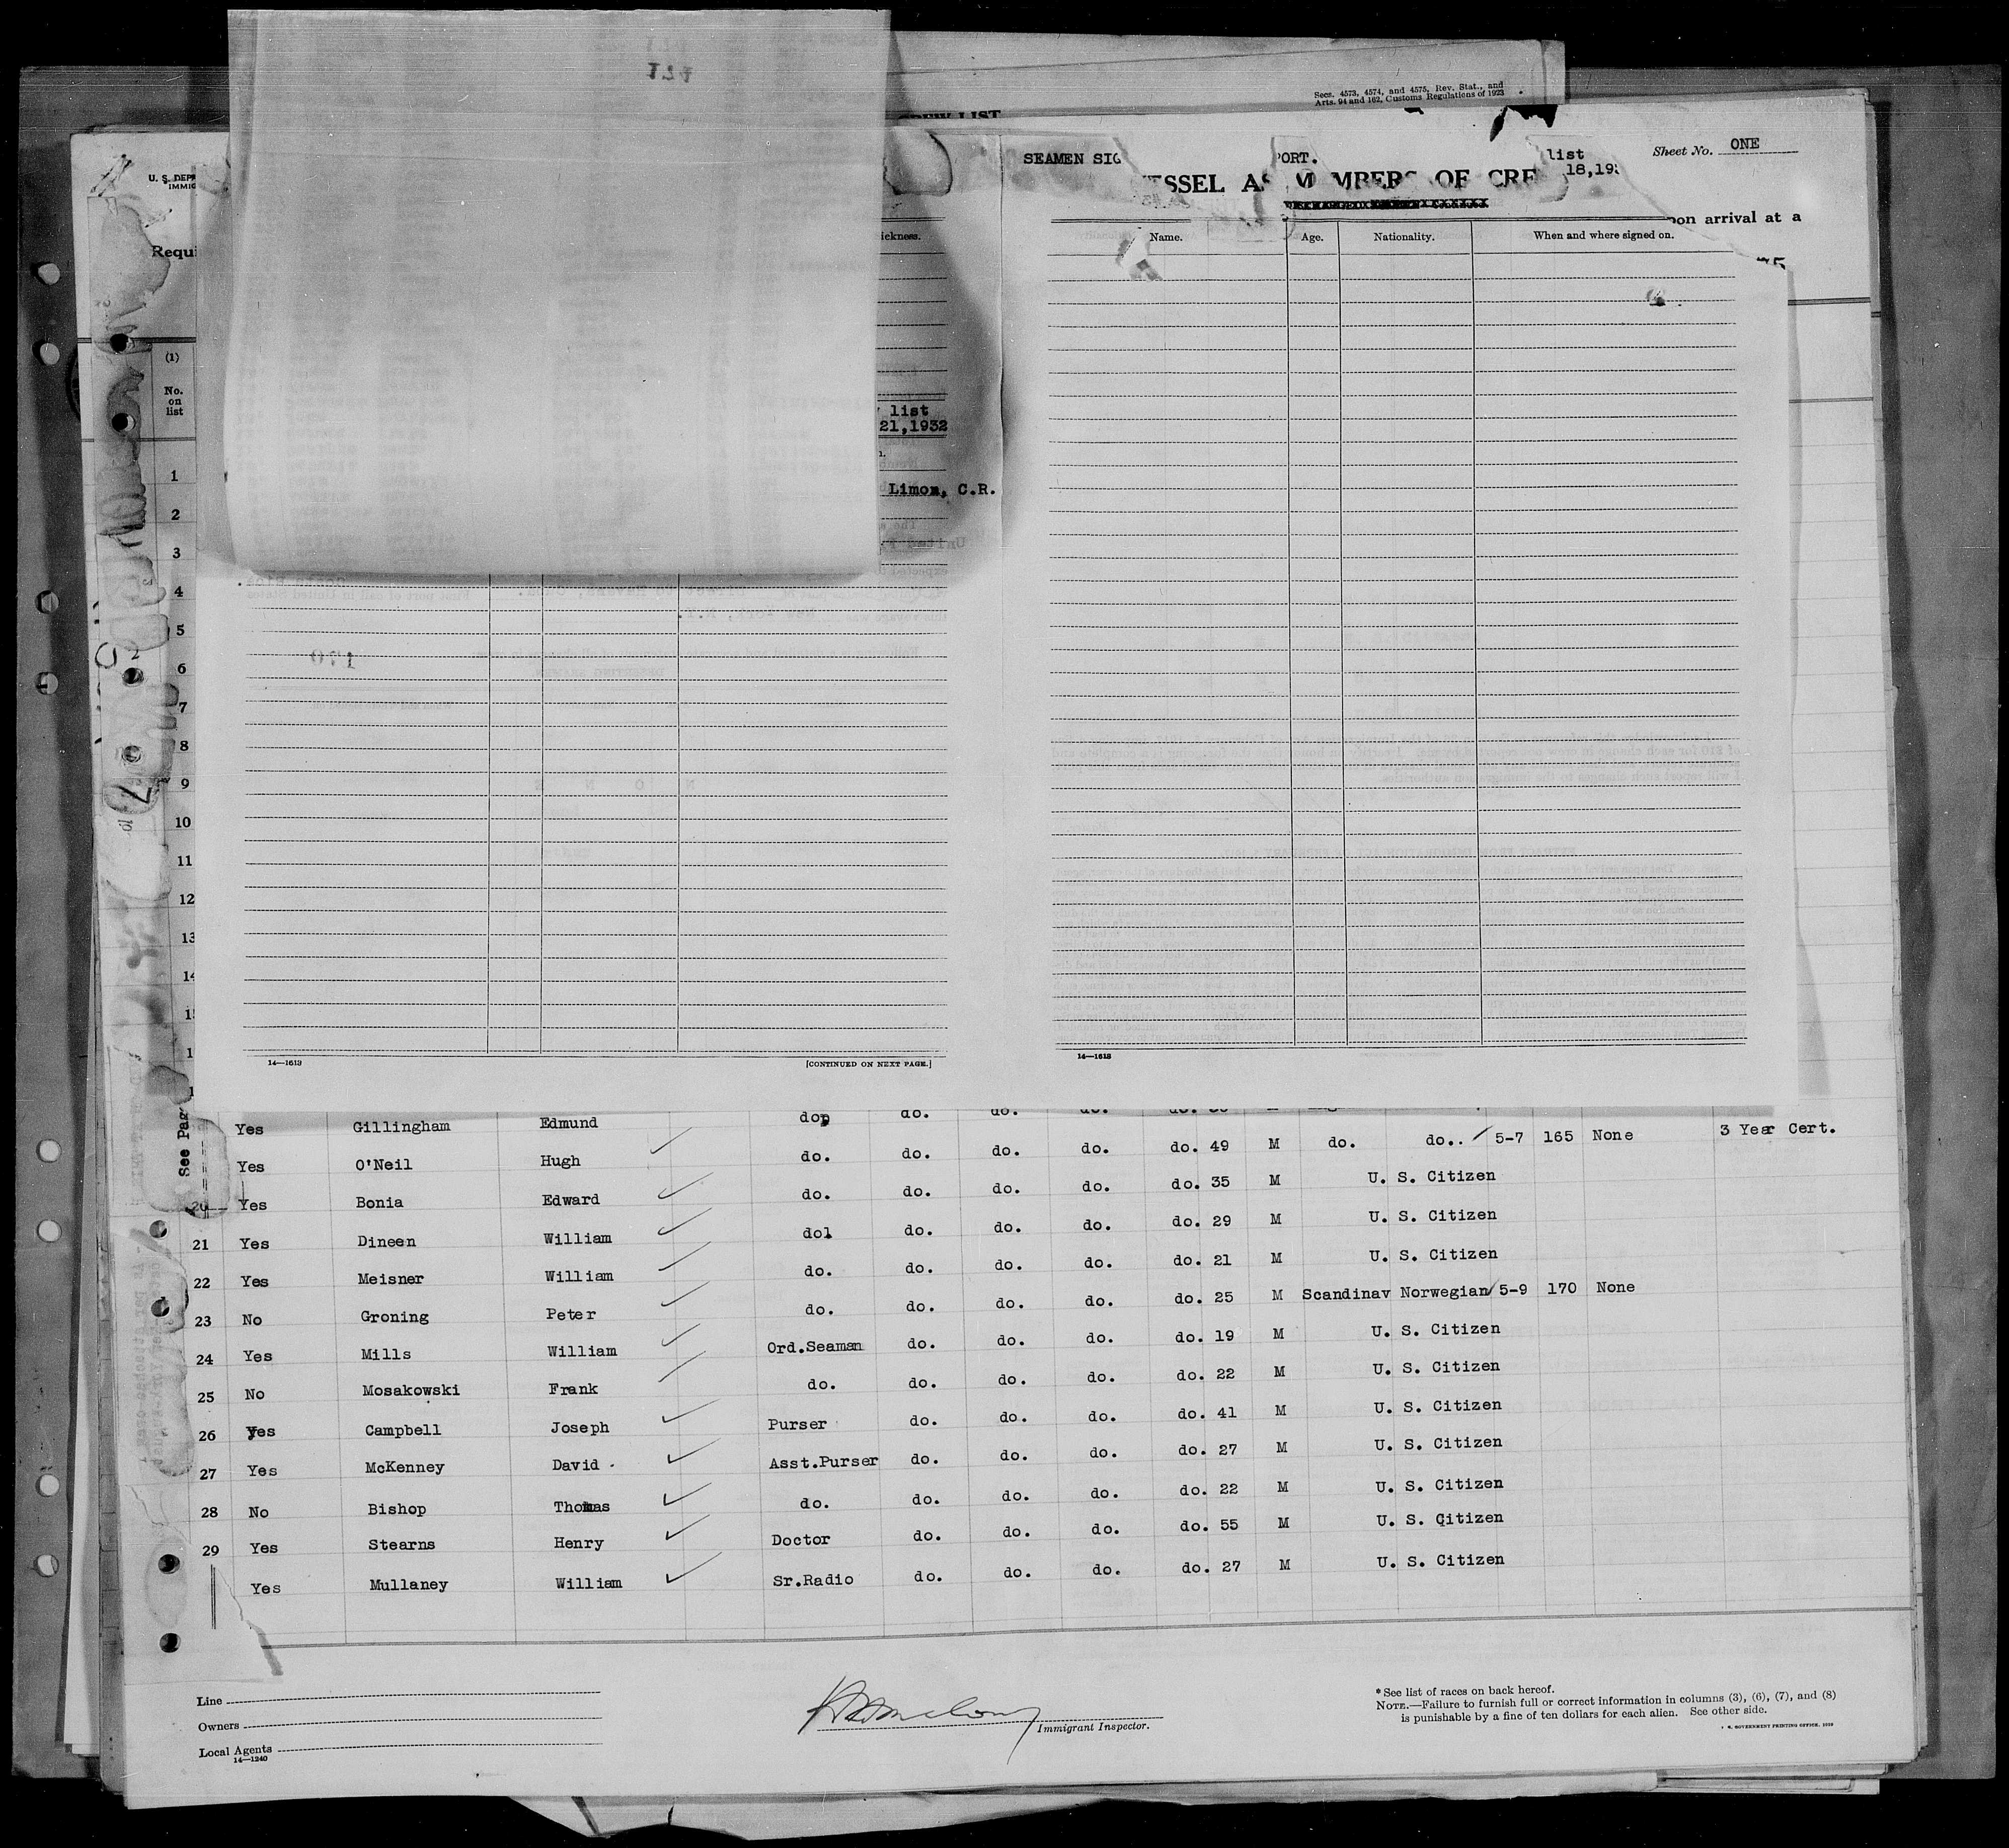 Secs. 4573, 4574, and 4575, Rev. Stat., and
Arts. 94 and 162, Customs Regulations of 1923
CREW LIST
Sheet No. ONE
SEAMEN SIG PORT. list
18,193
U. S. DEP
IMMIG
ESSEL AS MEMBERS OF CRE
pon arrival at a
Requi
ickness.
Name. Age. Nationality. When and where signed on.
(1)
No.
on
list
list
21,1932
Limon, C.R.
1
2
3
4
5
6
7
8
9
10
11
12
13
14
14—1613 [CONTINUED ON NEXT PAGE.] 14—1613
See Pag
Yes Gillingham Edmund do. do. do.
Yes O'Neil Hugh do. do. do. do. do. 49 M do. do.. 5-7 165 None 3 Year Cert.
20 Yes Bonia Edward do. do. do. do. do. 35 M U. S. Citizen
21 Yes Dineen William dol do. do. do. do. 29 M U. S. Citizen
22 Yes Meisner William do. do. do. do. do. 21 M U. S. Citizen
23 No Groning Peter do. do. do. do. do. 25 M Scandinav Norwegian 5-9 170 None
24 Yes Mills William Ord.Seaman do. do. do. do. 19 M U. S. Citizen
25 No Mosakowski Frank do. do. do. do. do. 22 M U. S. Citizen
26 Yes Campbell Joseph Purser do. do. do. do. 41 M U. S. Citizen
27 Yes McKenney David Asst.Purser do. do. do. do. 27 M U. S. Citizen
28 No Bishop Thomas do. do. do. do. do. 22 M U. S. Citizen
29 Yes Stearns Henry Doctor do. do. do. do. 55 M U. S. Citizen
Yes Mullaney William Sr.Radio do. do. do. do. 27 M U. S. Citizen
Line
Owners
Local Agents
14—1240
Immigrant Inspector.
* See list of races on back hereof.
NOTE.—Failure to furnish full or correct information in columns (3), (6), (7), and (8)
is punishable by a fine of ten dollars for each alien. See other side.
U. S. GOVERNMENT PRINTING OFFICE. 1929